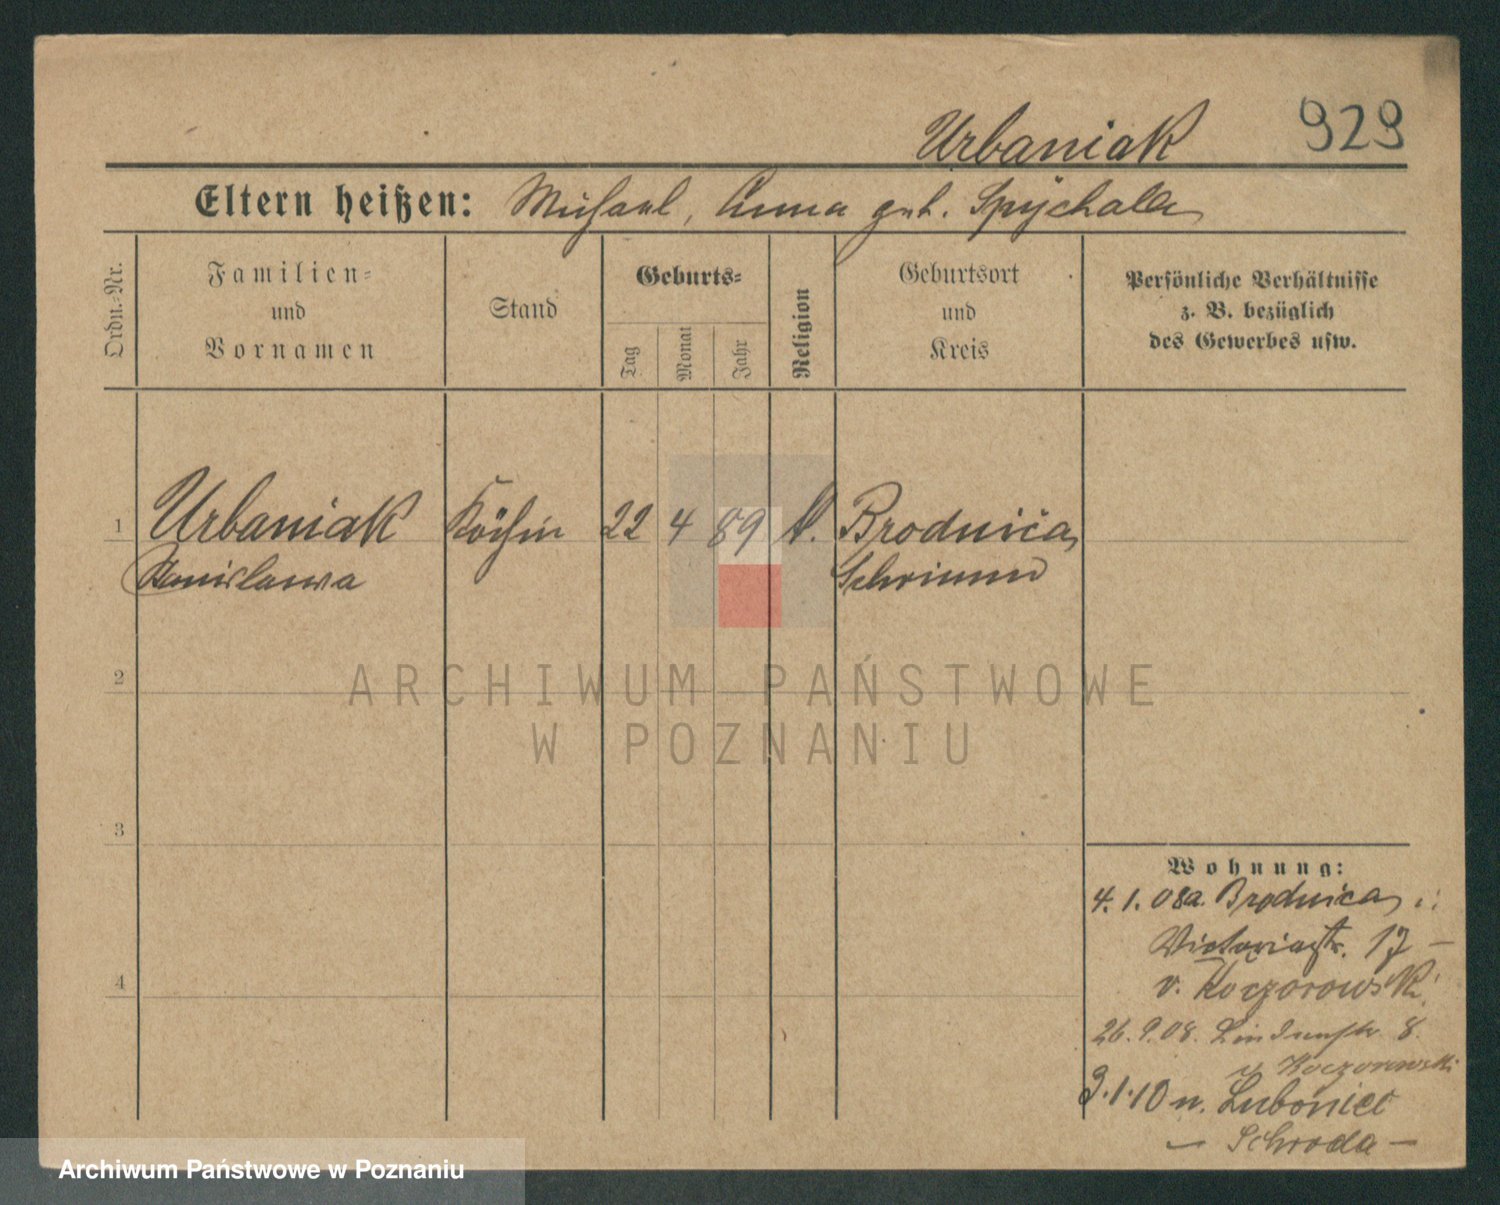 Urbaniak 929
Eltern heißen: Michael, Anna geb. Spÿchala
Ordn.-Nr.
Familien-
und
Vornamen
Stand
Geburts-
Tag
Monat
Jahr
Religion
Geburtsort
und
Kreis
Persönliche Verhältnisse
z. B. bezüglich
des Gewerbes usw.
1 Urbaniak Köchin 22 4 89 k. Brodnica
Stanislawa Schrimm
2
3
4
Wohnung:
4. 1. 08 a. Brodnica
Victoriastr. 17
v. Koczorowski
26. 9. 08. Lindenstr. 8.
v. Koczorowski
3. 1. 10 n. Luboniec
— Schroda —
ARCHIWUM PAŃSTWOWE
W POZNANIU
Archiwum Państwowe w Poznaniu